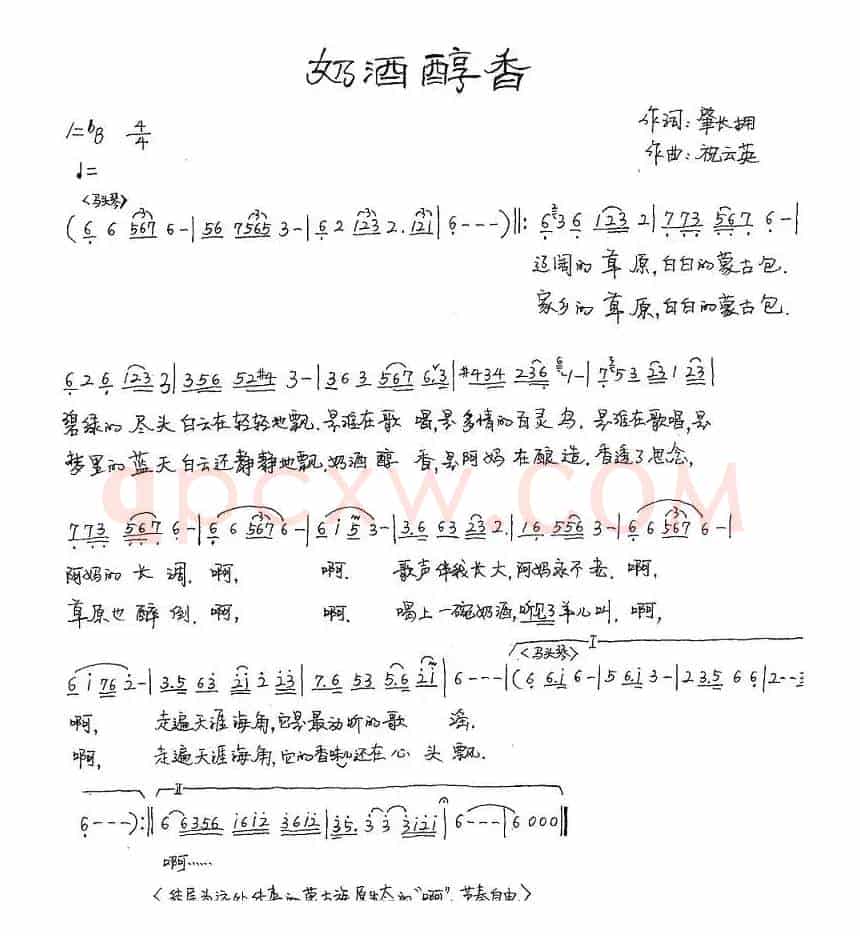 奶酒醇香
1=♭B 4/4
作词: 肇长拥
♩=
作曲: 祝云英
<马头琴>
(6 6 567 6-|56 7565 3-|6 2 123 2. 121|6---)‖: 6 3 6 123 2|773 567 6-|
辽阔的草原,白白的蒙古包.
家乡的草原,白白的蒙古包.
626 123 3|356 52#4 3-|363 567 6.3|#434 236 1-|753 231 23|
碧绿的尽头白云在轻轻地飘.是谁在歌唱,是多情的百灵鸟.是谁在歌唱,是
梦里的蓝天白云还静静地飘.奶酒醇香,是阿妈在酿造.香透了思念,
qpcxw.COM
773 567 6-|6 6 567 6-|6 i 5 3-|3.6 63 23 2.|16 556 3-|6 6 567 6-|
阿妈的长调.啊,啊.歌声伴我长大,阿妈永不老.啊,
草原也醉倒.啊,啊.喝上一碗奶酒,听见了羊儿叫.啊,
I
<马头琴>
6 i 76 2-|3.5 63 2i 2 23|7.6 53 5.6 2i|6---|(6 6.i 6-|5 6.i 3-|2 3.5 6 6|2--
啊,走遍天涯海角,它是最动听的歌谣.
啊,走遍天涯海角,它的香味儿还在心头飘.
II
6---):‖6 6356 i6i2 36i2|35. 3 3 3i2i|6---|6000‖
啊……
<结尾为远处传来的蒙古族原生态的“啊”.节奏自由>